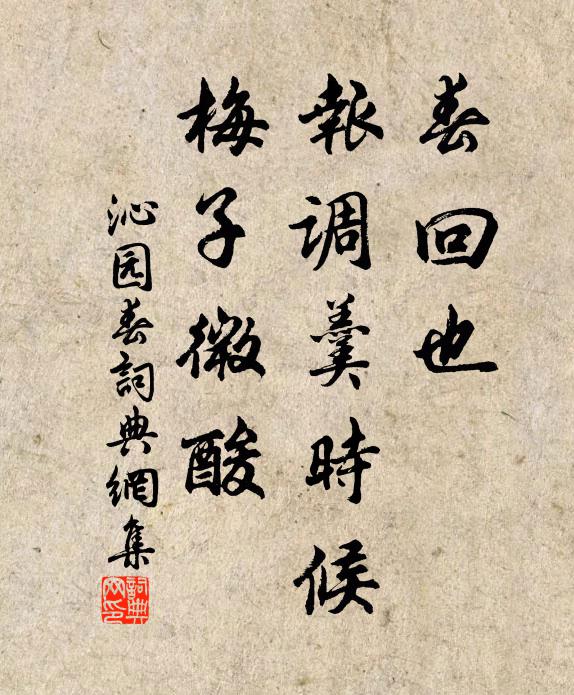 春回也
報调羹時候
梅子微酸
沁园春詞典網集
詞典
网印